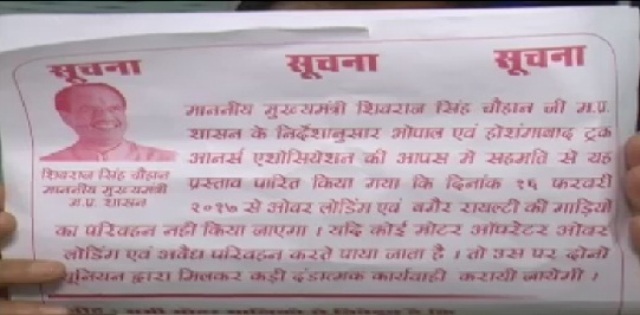 सूचना सूचना सूचना
माननीय मुख्यमंत्री शिवराज सिंह चौहान जी म.प्र.
शासन के निर्देशानुसार भोपाल एवं होशंगाबाद ट्रक
आनर्स एशोसियेशन की आपस में सहमति से यह
प्रस्ताव पारित किया गया कि दिनांक १६ फरवरी
२०१७ से ओवर लोडिंग एवं बगैर रायल्टी की गाड़ियो
का परिवहन नहीं किया जाएगा । यदि कोई मोटर ऑपरेटर ओवर
लोडिंग एवं अवैध परिवहन करते पाया जाता है । तो उस पर दोनो
यूनियन द्वारा मिलकर कड़ी दंडात्मक कार्यवाही करायी जायेगी ।
शिवराज सिंह चौहान
माननीय मुख्यमंत्री
म.प्र. शासन